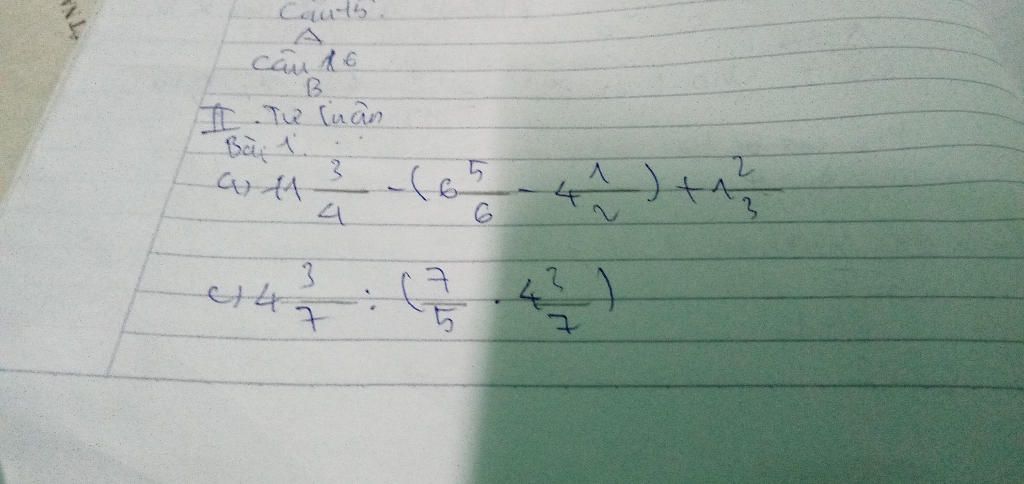 Câu 15.
A
Câu 16
B
II. Tự luận
Bài 1.
a) 11 3/4 - (6 5/6 - 4 1/2) + 1 2/3
c) 4 3/7 : (7/5 . 4 3/7)